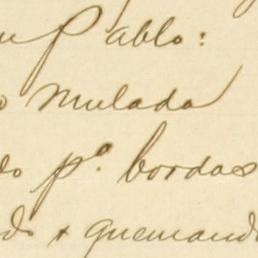 Pablo:
Mulada
do p.ª bordas
do + quemando